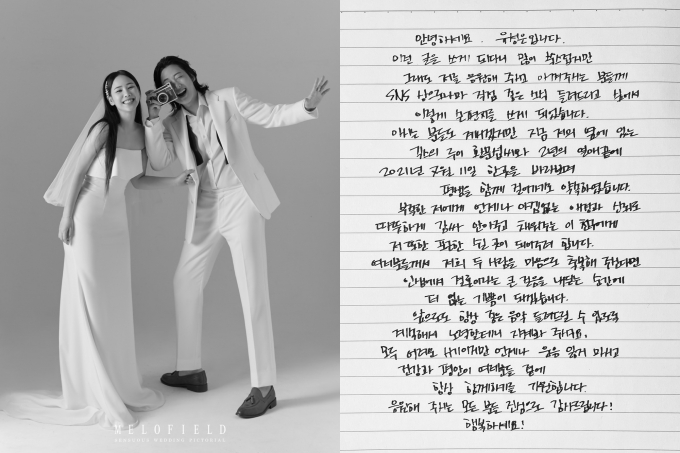 MELOFIELD
안녕하세요. 유성은입니다.
이런 글을 쓰게 되다니 많이 쑥스럽지만
그래도 저를 응원해 주고 아껴주시는 분들께
SNS 상으로나마 직접 좋은 소식 들려드리고 싶어서
이렇게 손편지를 쓰게 되었습니다.
아시는 분들도 계시겠지만 지금 저의 옆에 있는
긱스의 루이 황문섭씨와 2년의 연애끝에
2021년 7월 11일 한곳을 바라보며
평생을 함께 걸어가기로 약속하였습니다.
부족한 저에게 언제나 아낌없는 애정과 신뢰로
따뜻하게 감싸 안아주고 채워주는 이 친구에게
저 또한 포근한 쉴 곳이 되어주려 합니다.
여러분들께서 저희 두 사람을 마음으로 축복해 주신다면
인생에서 결혼이라는 큰 걸음을 내딛는 순간에
더 없는 기쁨이 되겠습니다.
앞으로도 항상 좋은 음악 들려드릴 수 있도록
계속해서 노력할테니 지켜봐 주세요.
모두 어려운 시기이지만 언제나 웃음 잃지 마시고
건강과 평안이 여러분들 곁에
항상 함께하기를 기원합니다.
응원해 주시는 모든 분들 진심으로 감사드립니다!
행복하세요!